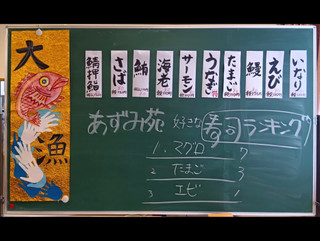 大漁
鯖押鮨
さば
鮪
海老
サーモン
うなぎ
たまご
鰻
えび
いなり
あずみ苑 好きな寿司ランキング
1. マグロ 7
2 たまご 3
3 エビ 1